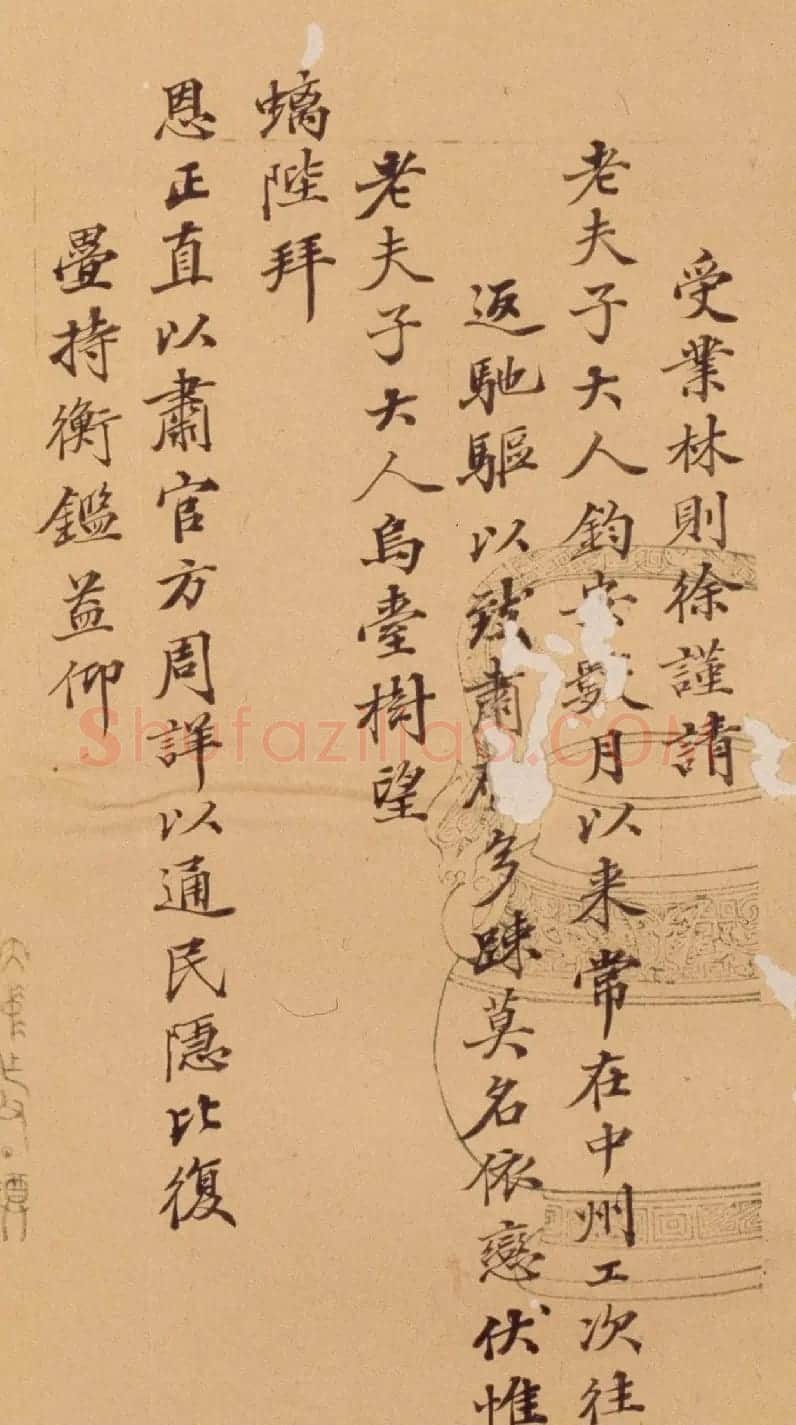 受業林則徐謹請
老夫子大人鈞安數月以来常在中州工次往
返馳驅以致肅 多踈莫名依戀伏惟
老夫子大人烏臺樹望
螭陛拜
恩正直以肅官方周詳以通民隱比復
疊持衡鑑益仰
Shufaziliao.COM